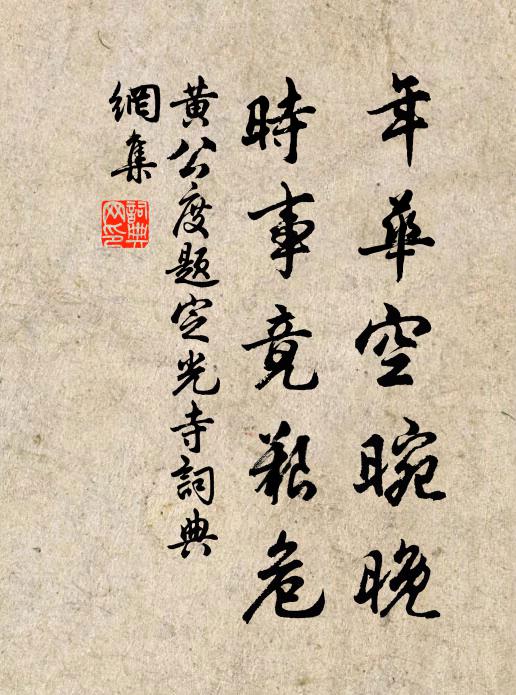 年華空晼晚
時事竟艱危
黃公度題定光寺詞典
網集
詞典
网印